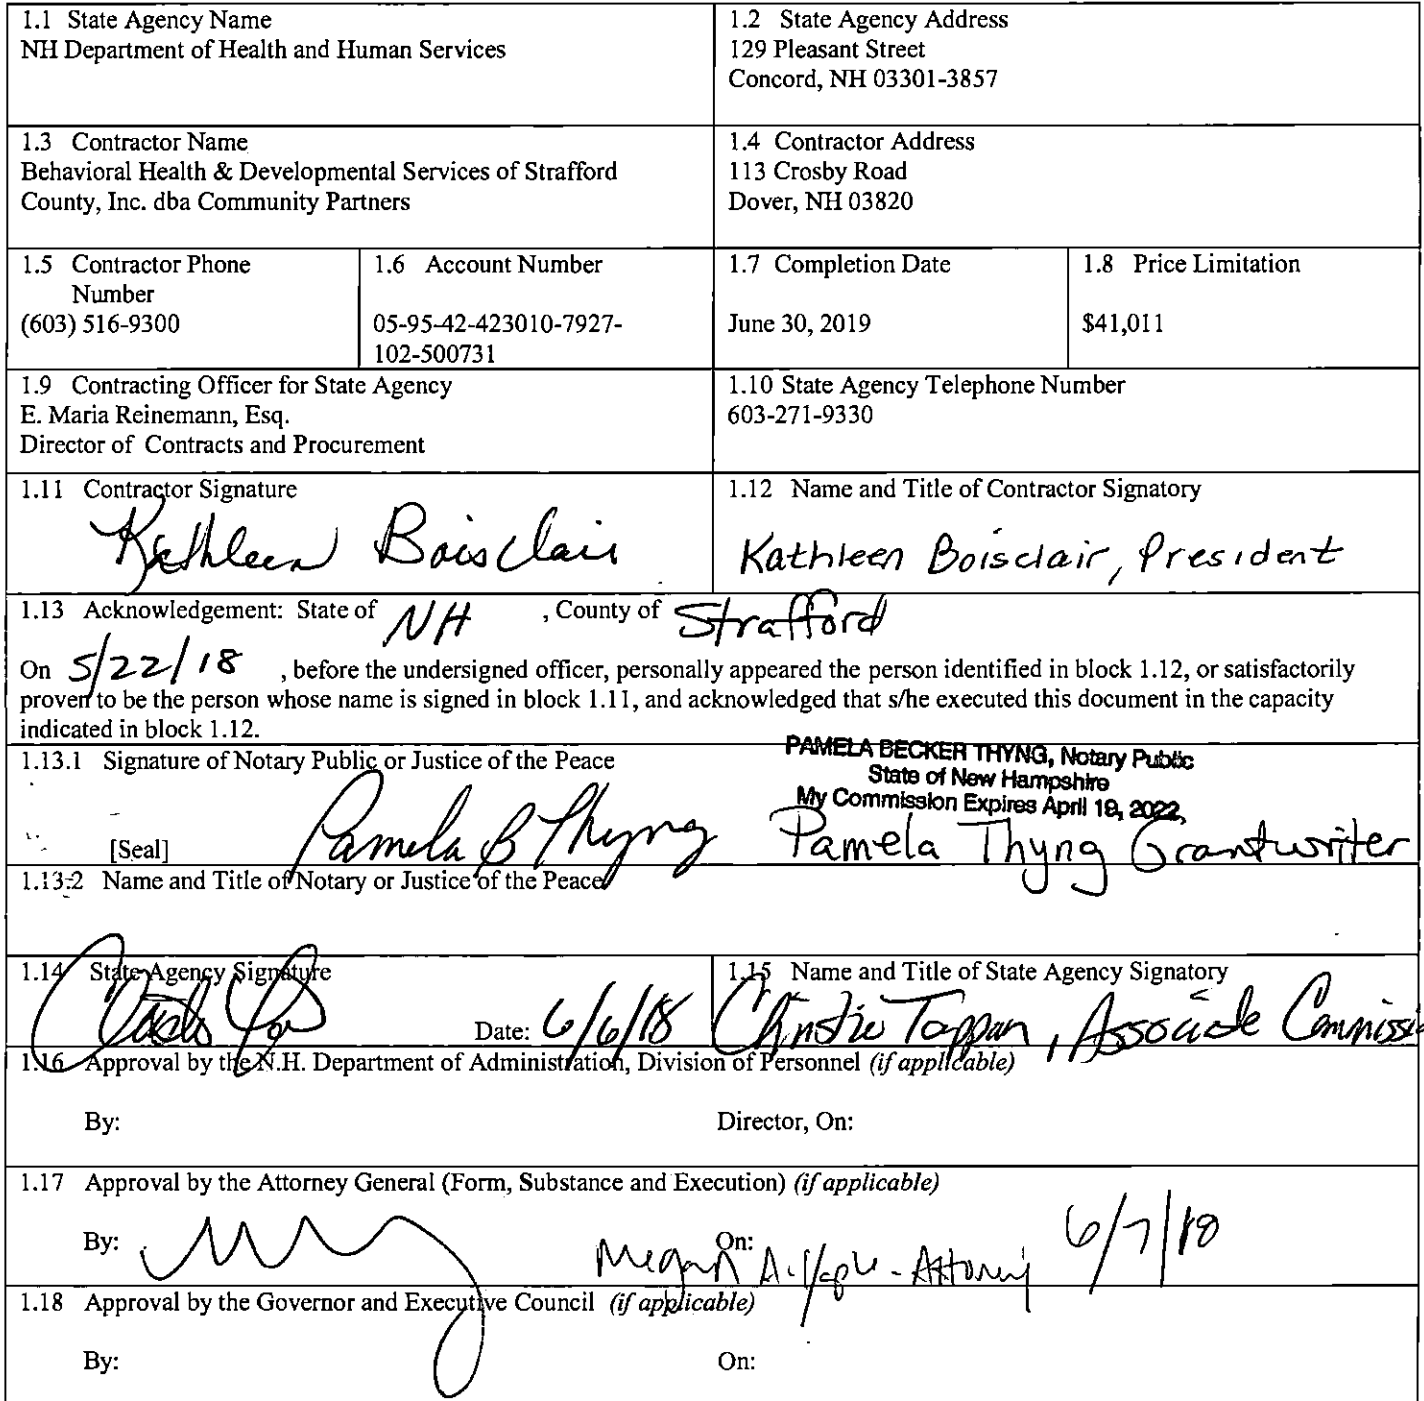 1.1 State Agency Name
NH Department of Health and Human Services
1.2 State Agency Address
129 Pleasant Street
Concord, NH 03301-3857
1.3 Contractor Name
Behavioral Health & Developmental Services of Strafford
County, Inc. dba Community Partners
1.4 Contractor Address
113 Crosby Road
Dover, NH 03820
1.5 Contractor Phone
Number
(603) 516-9300
1.6 Account Number
05-95-42-423010-7927-
102-500731
1.7 Completion Date
June 30, 2019
1.8 Price Limitation
$41,011
1.9 Contracting Officer for State Agency
E. Maria Reinemann, Esq.
Director of Contracts and Procurement
1.10 State Agency Telephone Number
603-271-9330
1.11 Contractor Signature
Kathleen Boisclair
1.12 Name and Title of Contractor Signatory
Kathleen Boisclair, President
1.13 Acknowledgement: State of NH , County of Strafford
On 5/22/18 , before the undersigned officer, personally appeared the person identified in block 1.12, or satisfactorily
proven to be the person whose name is signed in block 1.11, and acknowledged that s/he executed this document in the capacity
indicated in block 1.12.
1.13.1 Signature of Notary Public or Justice of the Peace
PAMELA BECKER THYNG, Notary Public
State of New Hampshire
My Commission Expires April 19, 2022
[Seal] Pamela B Thyng Pamela Thyng Grantwriter
1.13.2 Name and Title of Notary or Justice of the Peace
1.14 State Agency Signature
Date: 6/6/18
1.15 Name and Title of State Agency Signatory
Christie Tappan, Associate Commissi
1.16 Approval by the N.H. Department of Administration, Division of Personnel (if applicable)
By: Director, On:
1.17 Approval by the Attorney General (Form, Substance and Execution) (if applicable)
By: On: Megan - Attorney 6/7/18
1.18 Approval by the Governor and Executive Council (if applicable)
By: On: